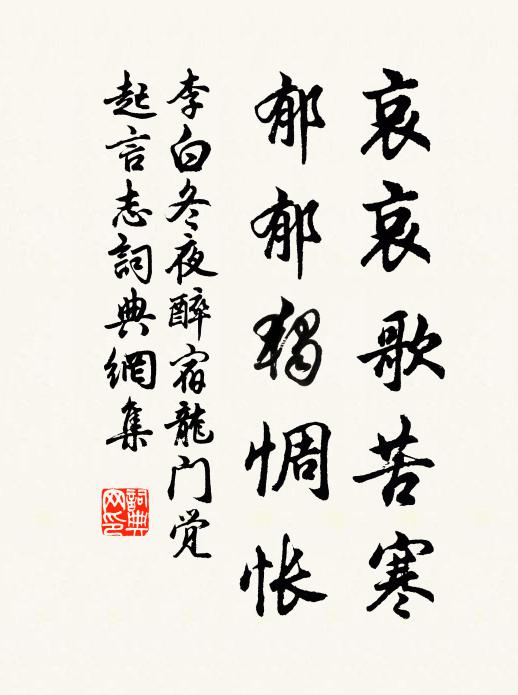 哀哀歌苦寒
郁郁獨惆怅
李白冬夜醉宿龍门觉
起言志詞典網集
詞典
网印